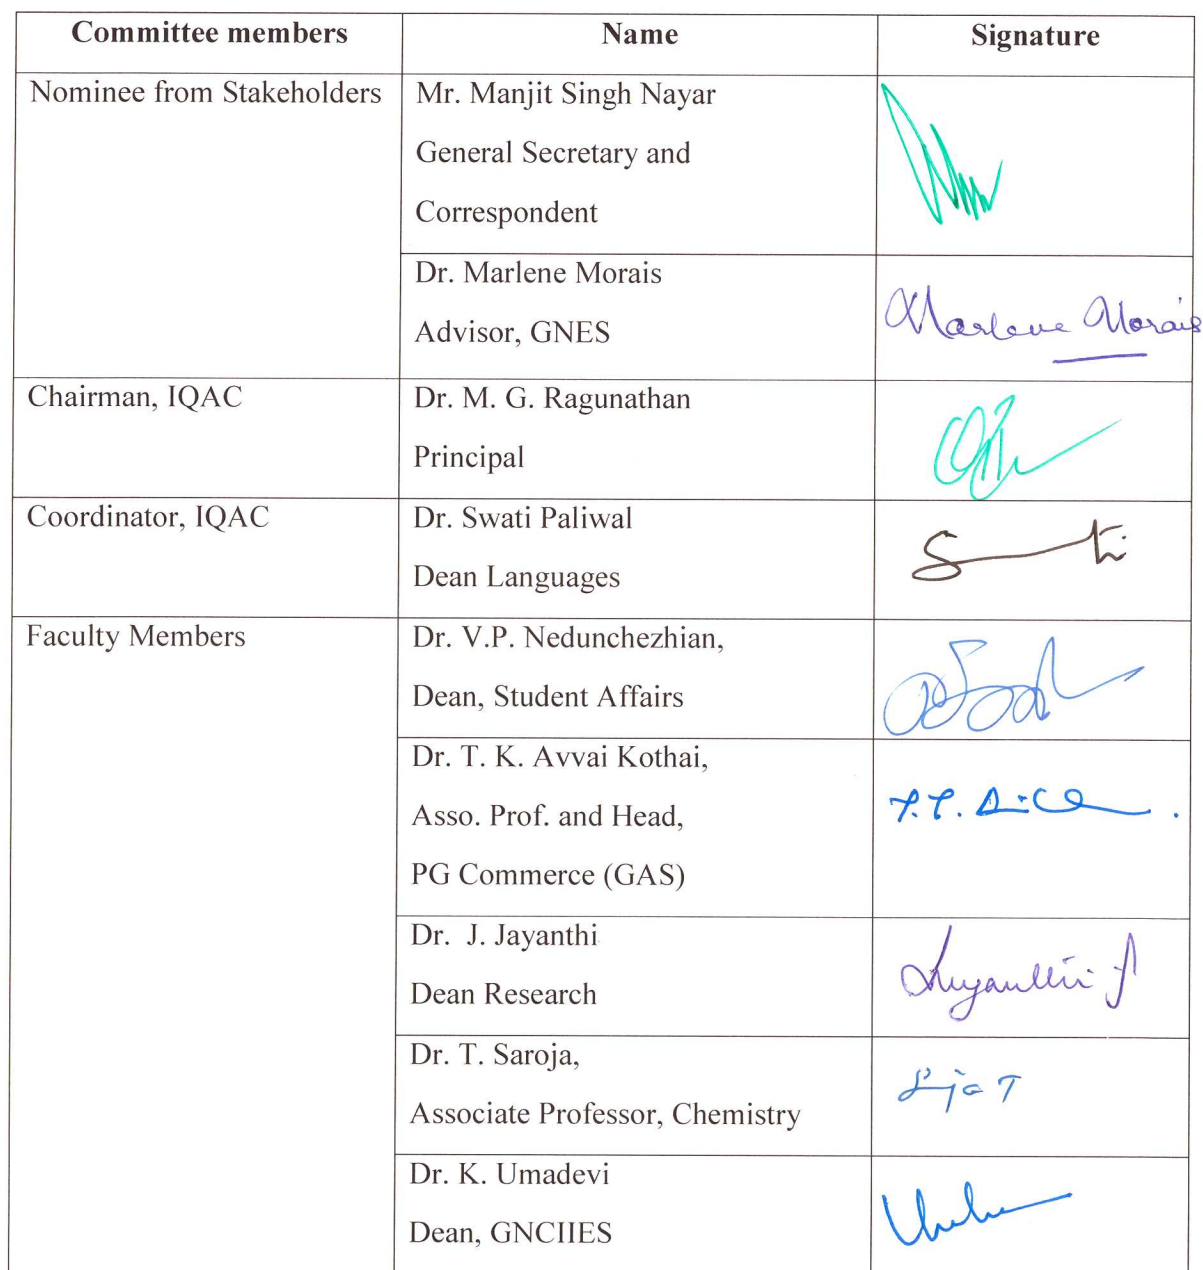 Committee members Name Signature
Nominee from Stakeholders Mr. Manjit Singh Nayar
General Secretary and
Correspondent
Dr. Marlene Morais
Advisor, GNES
Marlene Morais
Chairman, IQAC Dr. M. G. Ragunathan
Principal
Coordinator, IQAC Dr. Swati Paliwal
Dean Languages
Faculty Members Dr. V.P. Nedunchezhian,
Dean, Student Affairs
Dr. T. K. Avvai Kothai,
Asso. Prof. and Head,
PG Commerce (GAS)
Dr. J. Jayanthi
Dean Research
Jayanthi J
Dr. T. Saroja,
Associate Professor, Chemistry
Dr. K. Umadevi
Dean, GNCIIES